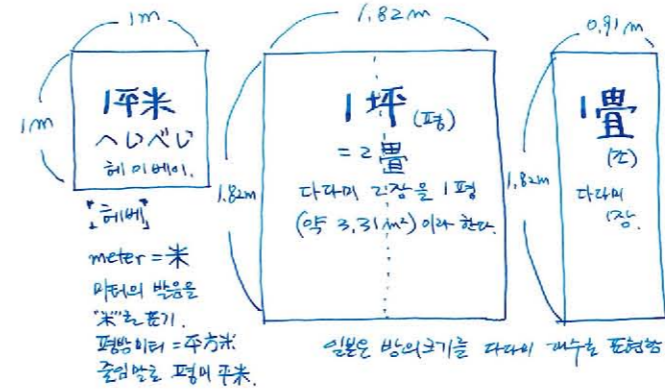 1m
1m
1平米
へいべい
헤이베이.
『헤베』
meter = 米
미터의 발음을
"米"로 표기.
평방미터 = 平方米
줄임말로 평미 平米.
1.82m
1.82m
1坪 (평)
= 2畳
다다미 2장을 1평
(약 3.31m²) 이라 한다.
0.91m
1.82m
1畳
다다미
1장.
일본은 방의크기를 다다미 개수로 표현함